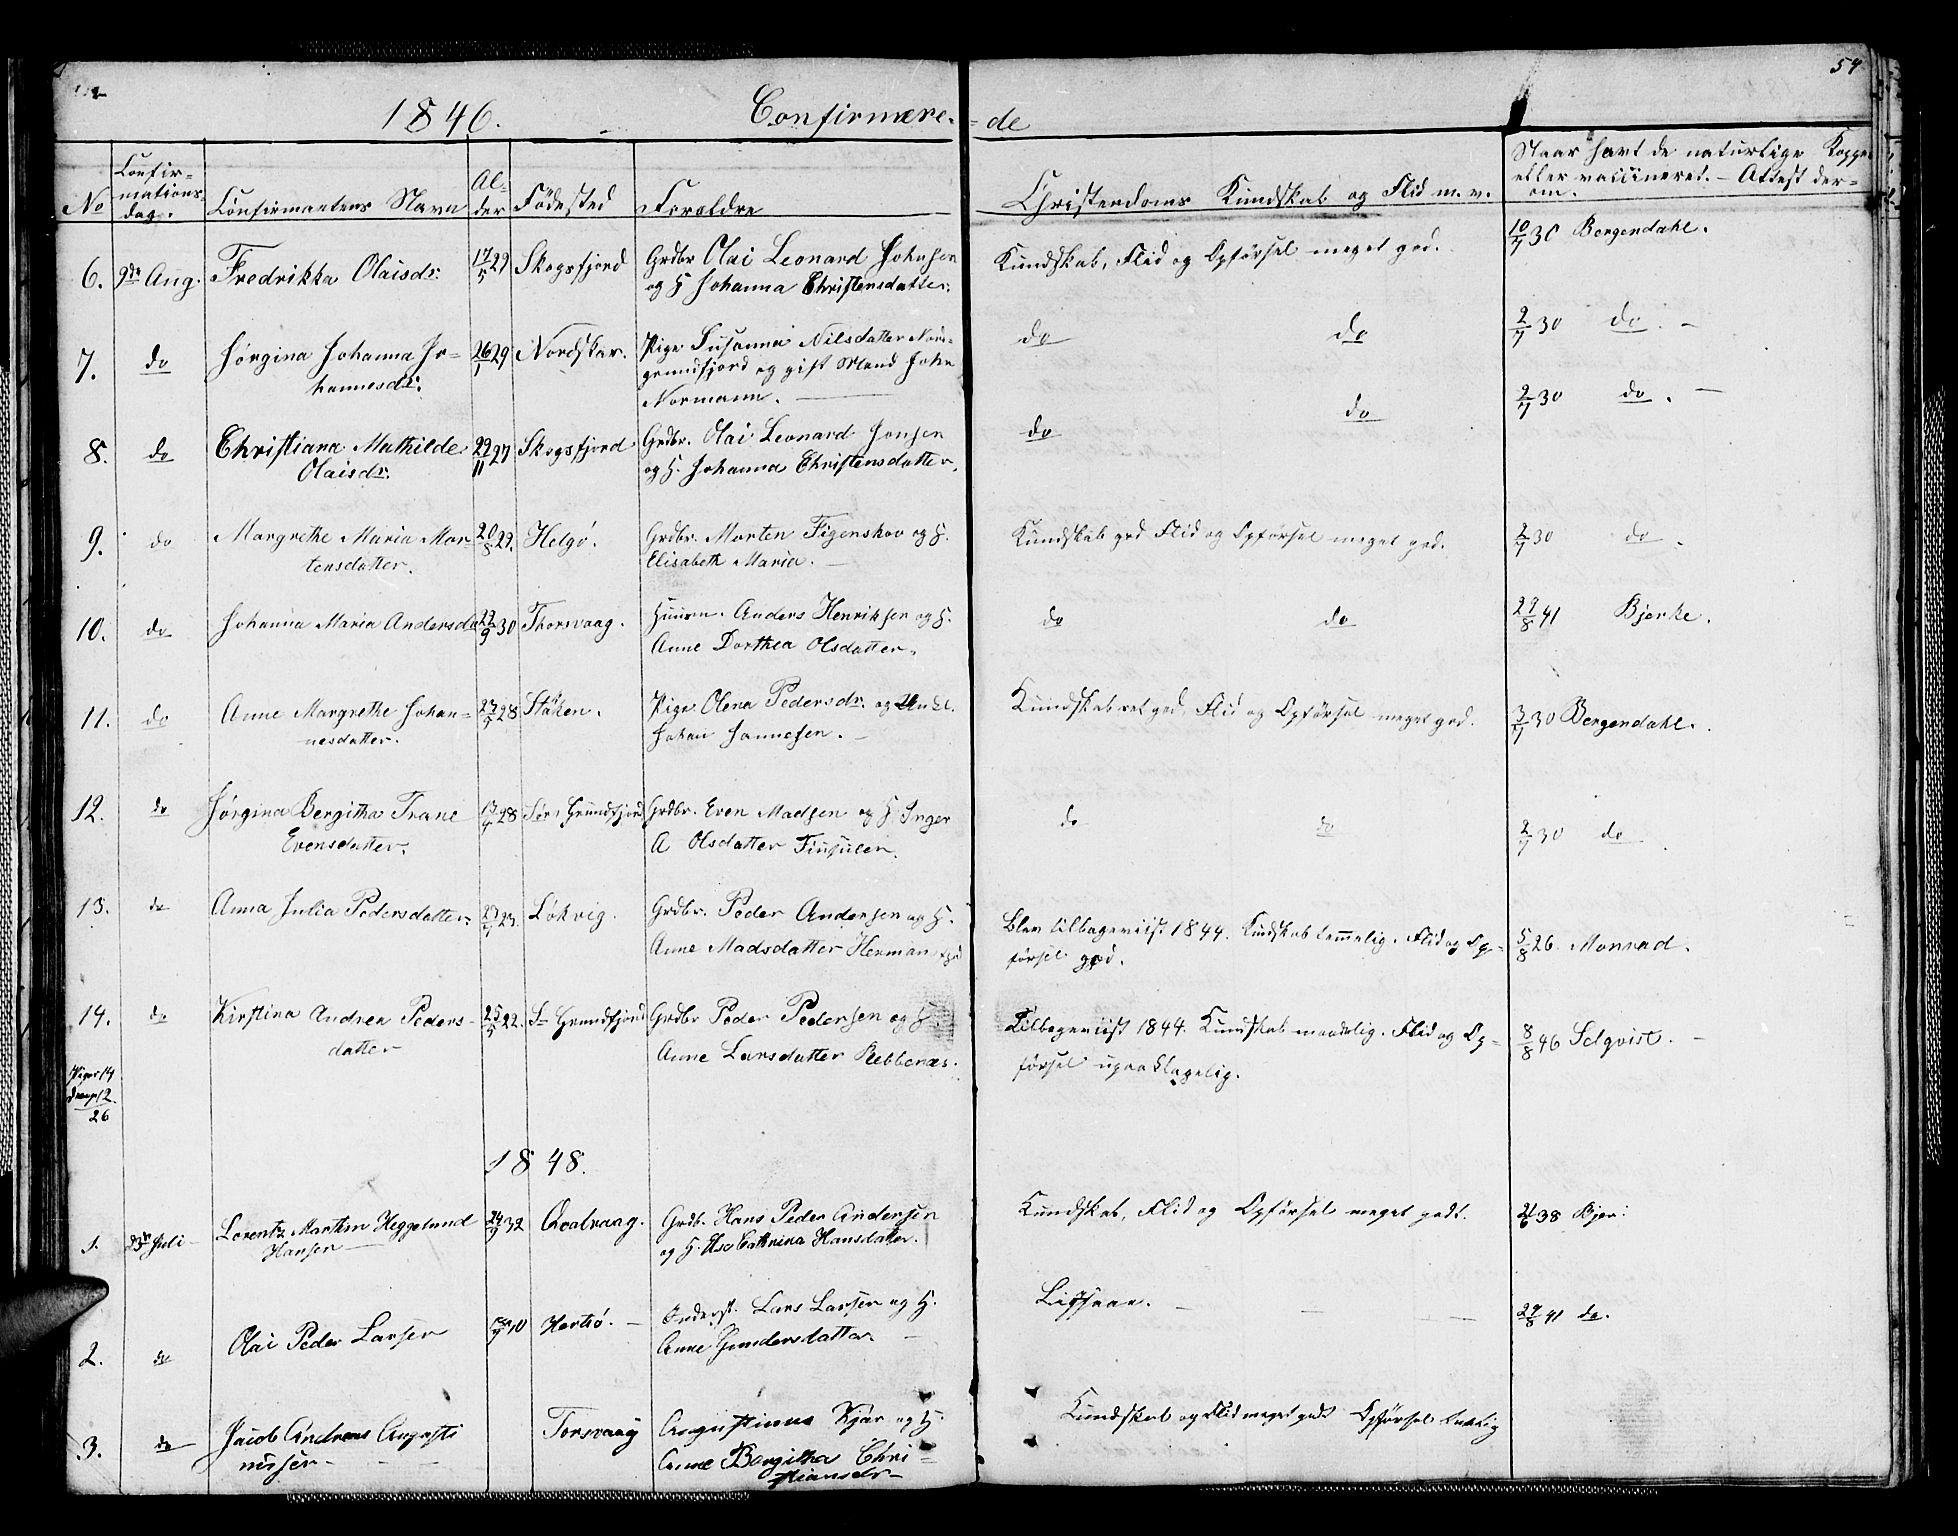 54
1846. Confirmere-
-de
No
Confir-
mations
dag.
Confirmantens Navn
Al-
der
Födested
Foræeldre
Christendoms Kundskab og Flid m. v.
Naar havt de naturlige Kopper
eller vaccineret. - Attest der-
om.
6. 9de Aug. Fredrikka Olaisdr. 17/5 29 Skogsfjord Grdbr Olai Leonard Johnsen
og H Johanna Christensdatter.
Kundskab, Flid og Opførsel meget god. 10/7 30 Bergendahl.
7. do Jørgina Johanna Jo-
hannesdr. 26/1 29 Nordskar. Pige Susanna Nilsdatter Nord-
grundfjord og gift Mand John
Normann.
do do 2/7 30 do. -
8. do Christiana Mathilde
Olaisdr. 29/11 27 Skogsfjord Grdbr. Olai Leonard Jonsen
og H. Johanna Christensdatter.
do do 2/7 30 do. -
9. do Margrethe Maria Mor-
tensdatter. 20/8 29. Helgö. Grdbr. Morten Figenskov og H.
Elisabeth Maria. -
Kundskab god Flid og Opførsel meget god. 2/7 30 do.
10. do Johanna Maria Andersda 22/9 30 Thorsvaag. Huusm. Anders Henriksen og H.
Anne Dorthea Olsdatter.
do do 29/8 41 Bjerke.
11. do Anne Margrethe Johan-
nesdatter. 23/5 28 Stäken. Pige Olena Pedersdr. og Unkl.
Johan Hannesen. -
Kundskab ret god, Flid og Opførsel meget god. 3/7 30 Bergendahl.
12. do Jørgina Bergitha Trane
Evensdatter. 13/7 28 Sør Grundfjord Grdbr. Even Madsen og H Inger
A Olsdatter Finhulen.
do do 2/7 30 do
13. do Anna Julia Pedersdatter 23. Lökvig. Grdbr. Peder Andersen og H.
Anne Madsdatter Herman
Blev tilbageviist 1844. Kundskab temmelig. Flid og Op-
førsel god. 5/8 26. Monrad.
14. do Kirstina Andrea Peders-
datter 25/5 22. Sr Grundfjord Grdbr Peder Pedersen og H
Anne Larsdatter Rebbenæs.
Tilbageviist 1844. Kundskab maadelig. Flid og Op-
førsel upaaklagelig. 8/8 46 Selqvist. -
Piger 14
Drenge 12.
26
1848.
1. 23de Juli Lorentz Marthin Heggelund
Hansen 24/9 32 Qvalvaag. Grdb. Hans Peder Andersen
og H. Else Cathrina Hansdatter.
Kundskab, Flid og Opførsel meget godt. 21/6 38 Bjer:
2. do Olai Peder Larsen Hertiö. Lars Larsen og H.
Anne Gundersdatter
Ligesaa. - 29/8 41 do.
3. do Jacob Andreas Augusti
nusen Torsvaag Augustinus Kjär og H.
Anne Bergitha Chri-
stiansdr
Kundskab og Flid meget godt Opførsel